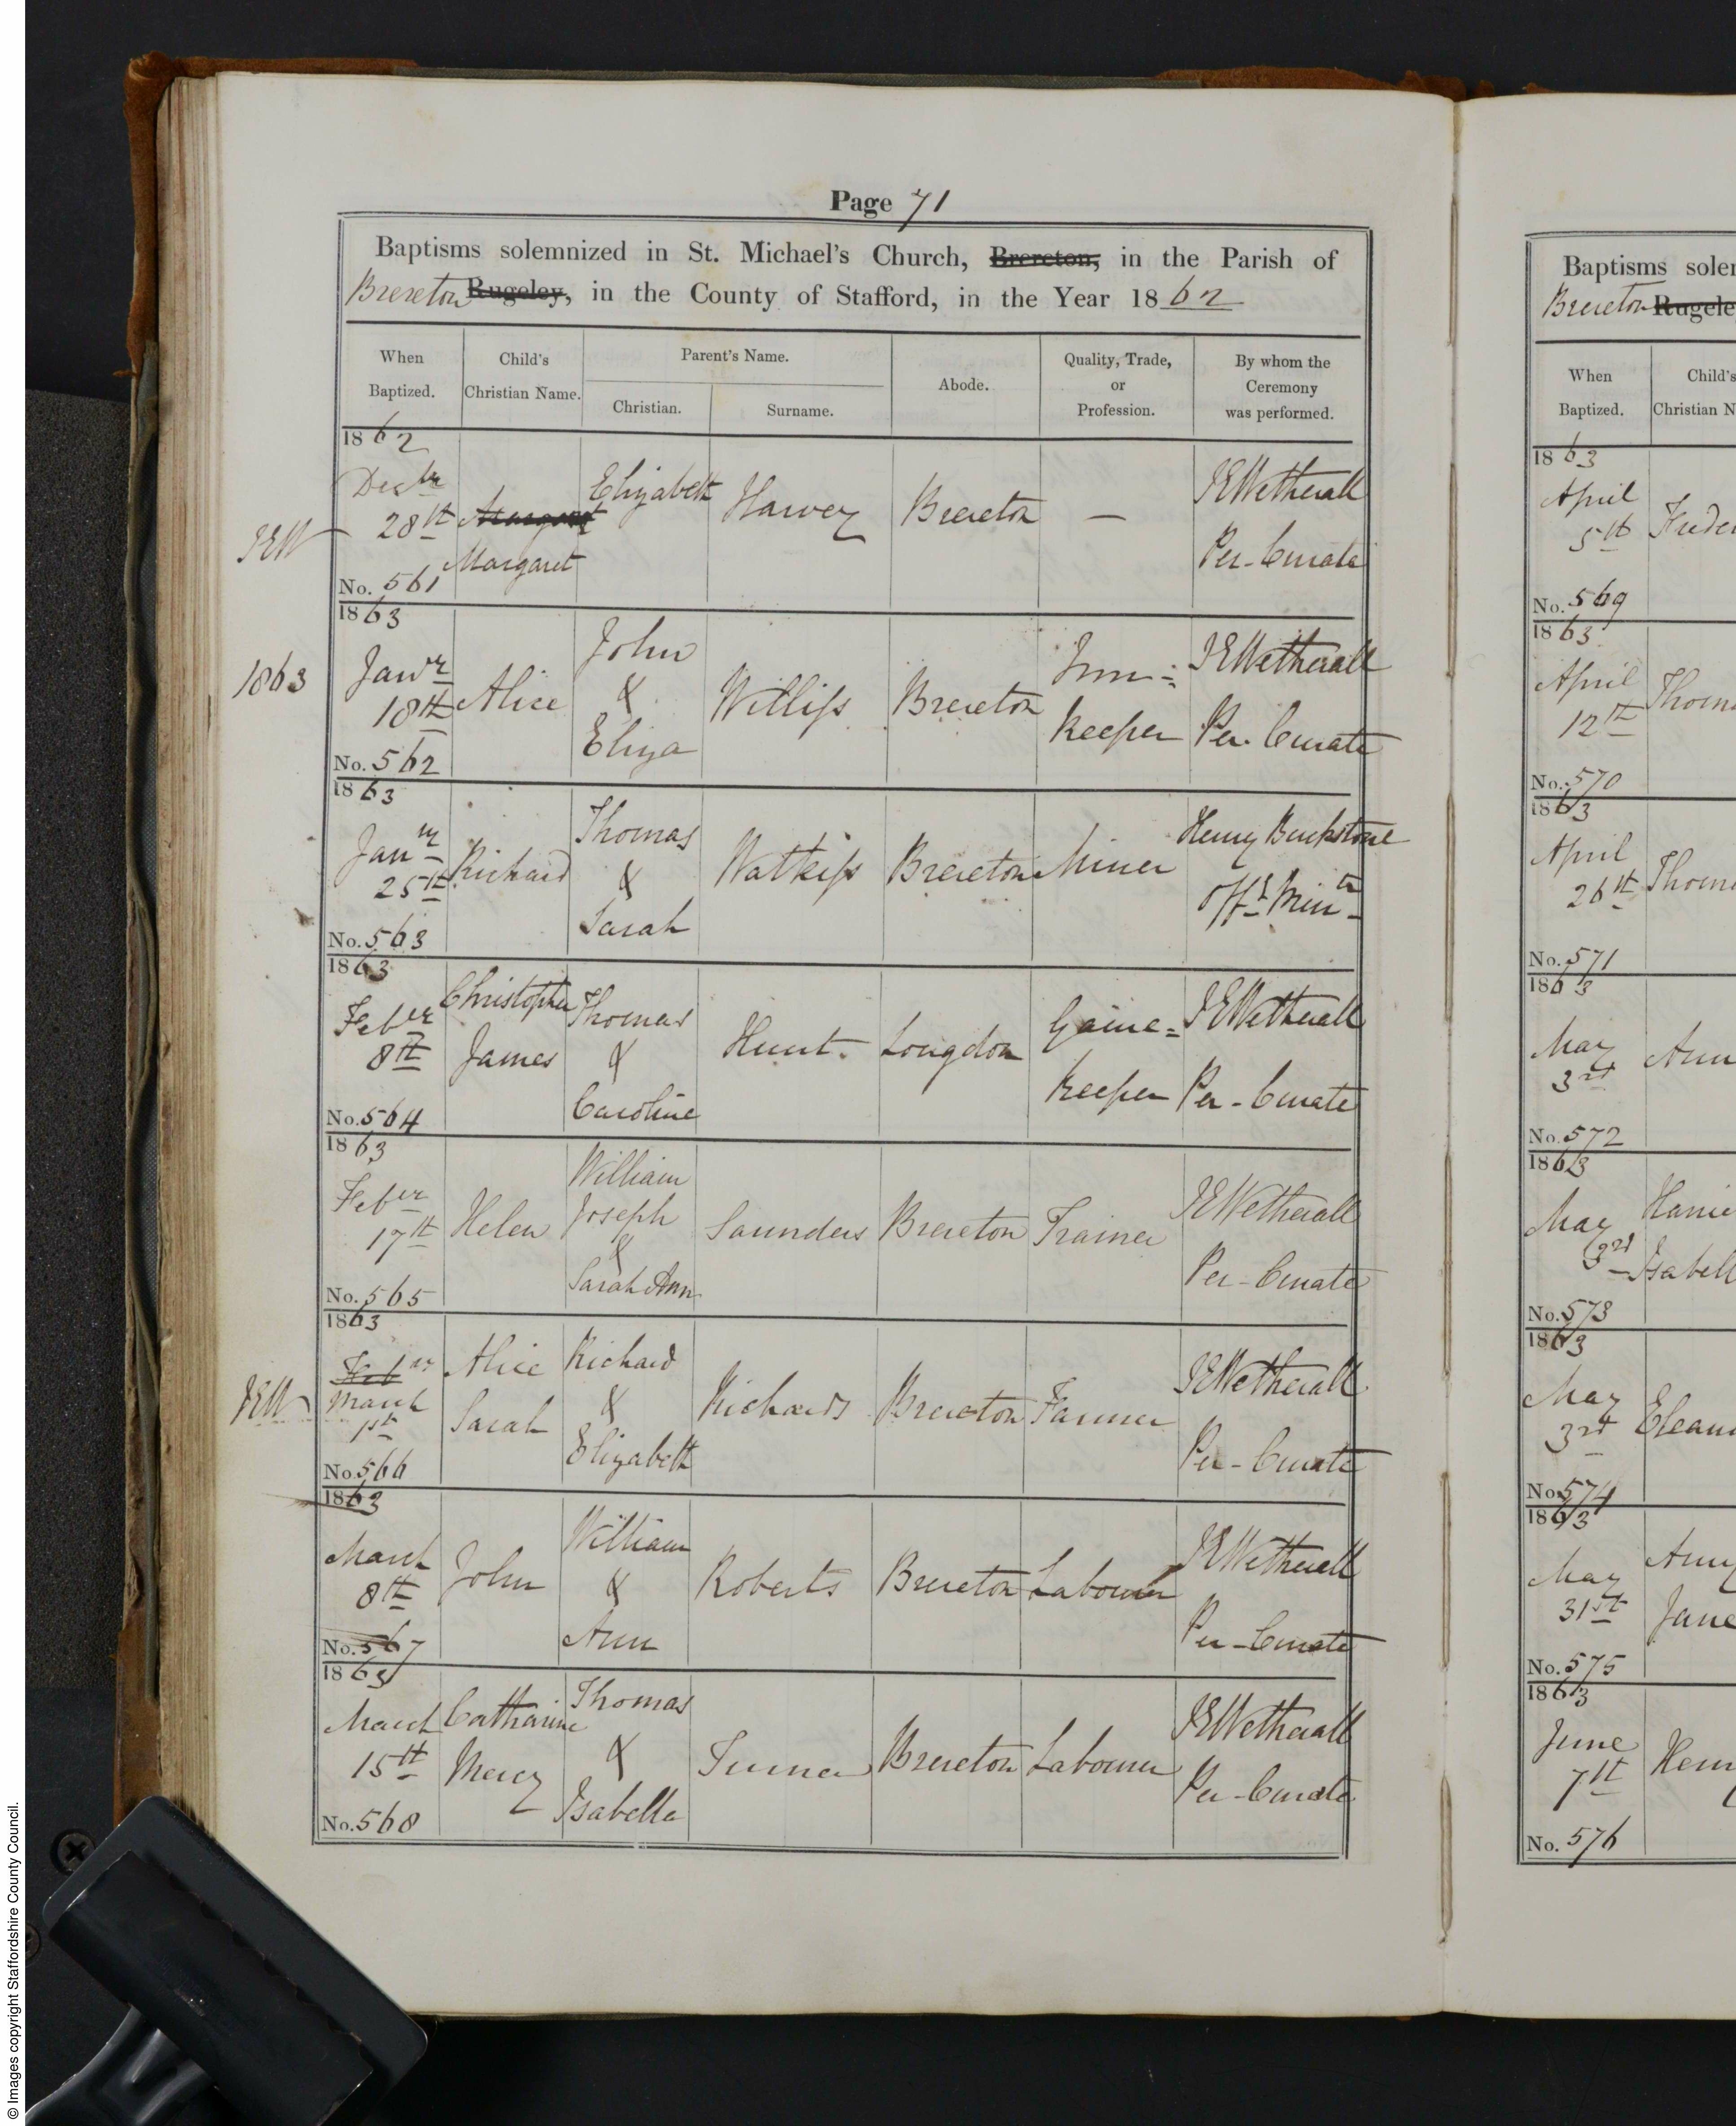 Page 71
Baptisms solemnized in St. Michael's Church, Brereton, in the Parish of
Brereton Rugeley, in the County of Stafford, in the Year 1862
When Baptized.
Child's Christian Name.
Parent's Name.
Christian.
Surname.
Abode.
Quality, Trade, or Profession.
By whom the Ceremony was performed.
1862
Decbr
28th
JEW
No. 561
Margaret
Margaret
Elizabeth
Harvey
Brereton
—
JEWetherall
Per-Curate
1863
1863
Janr
18th
No. 562
Alice
John
&
Eliza
Williss
Brereton
Inn=
keeper
JEWetherall
Per. Curate
1863
Janry
25th
No. 563
Richard
Thomas
&
Sarah
Watkiss
Brereton
Miner
Henry
Offg Minr
1863
Feber
8th
No. 564
Christopher
James
Thomas
&
Caroline
Hunt.
Longdon
Game=
keeper
JEWetherall
Per-Curate
1863
Feber
17th
No. 565
Helen
William
Joseph
&
Sarah Ann
Saunders
Brereton
Trainer
JEWetherall
Per-Curate
1863
JEW
March
1st
No. 566
Alice
Sarah
Richard
&
Elizabeth
Richards
Brereton
Farmer
JEWetherall
Per-Curate
1863
March
8th
No. 567
John
William
&
Ann
Roberts
Brereton
Labourer
JEWetherall
Per-Curate
1863
March
15th
No. 568
Catharine
Mercy
Thomas
&
Isabella
Turner
Brereton
Labourer
JEWetherall
Per-Curate
Baptisms soler
Brereton Rugele
When
Baptized.
Child's
Christian N
1863
April
5th
No. 569
Freder
1863
April
12th
No. 570
Thoma
1863
April
26th
No. 571
Thoma
1863
May
3rd
No. 572
Ann
1863
May
3rd
No. 573
Harrie
Isabell
1863
May
3rd
No. 574
Eleano
1863
May
31st
No. 575
Jane
1863
June
7th
No. 576
Henr
© Images copyright Staffordshire County Council.